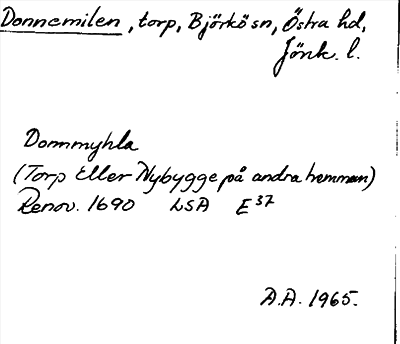 Donnemilen, torp, Björkö sn, Östra hd,
Jönk. l.
Dommyhla
(Torp Eller Nybygge på andra hemman)
Renov. 1690 LSA E 37
A.A. 1965.